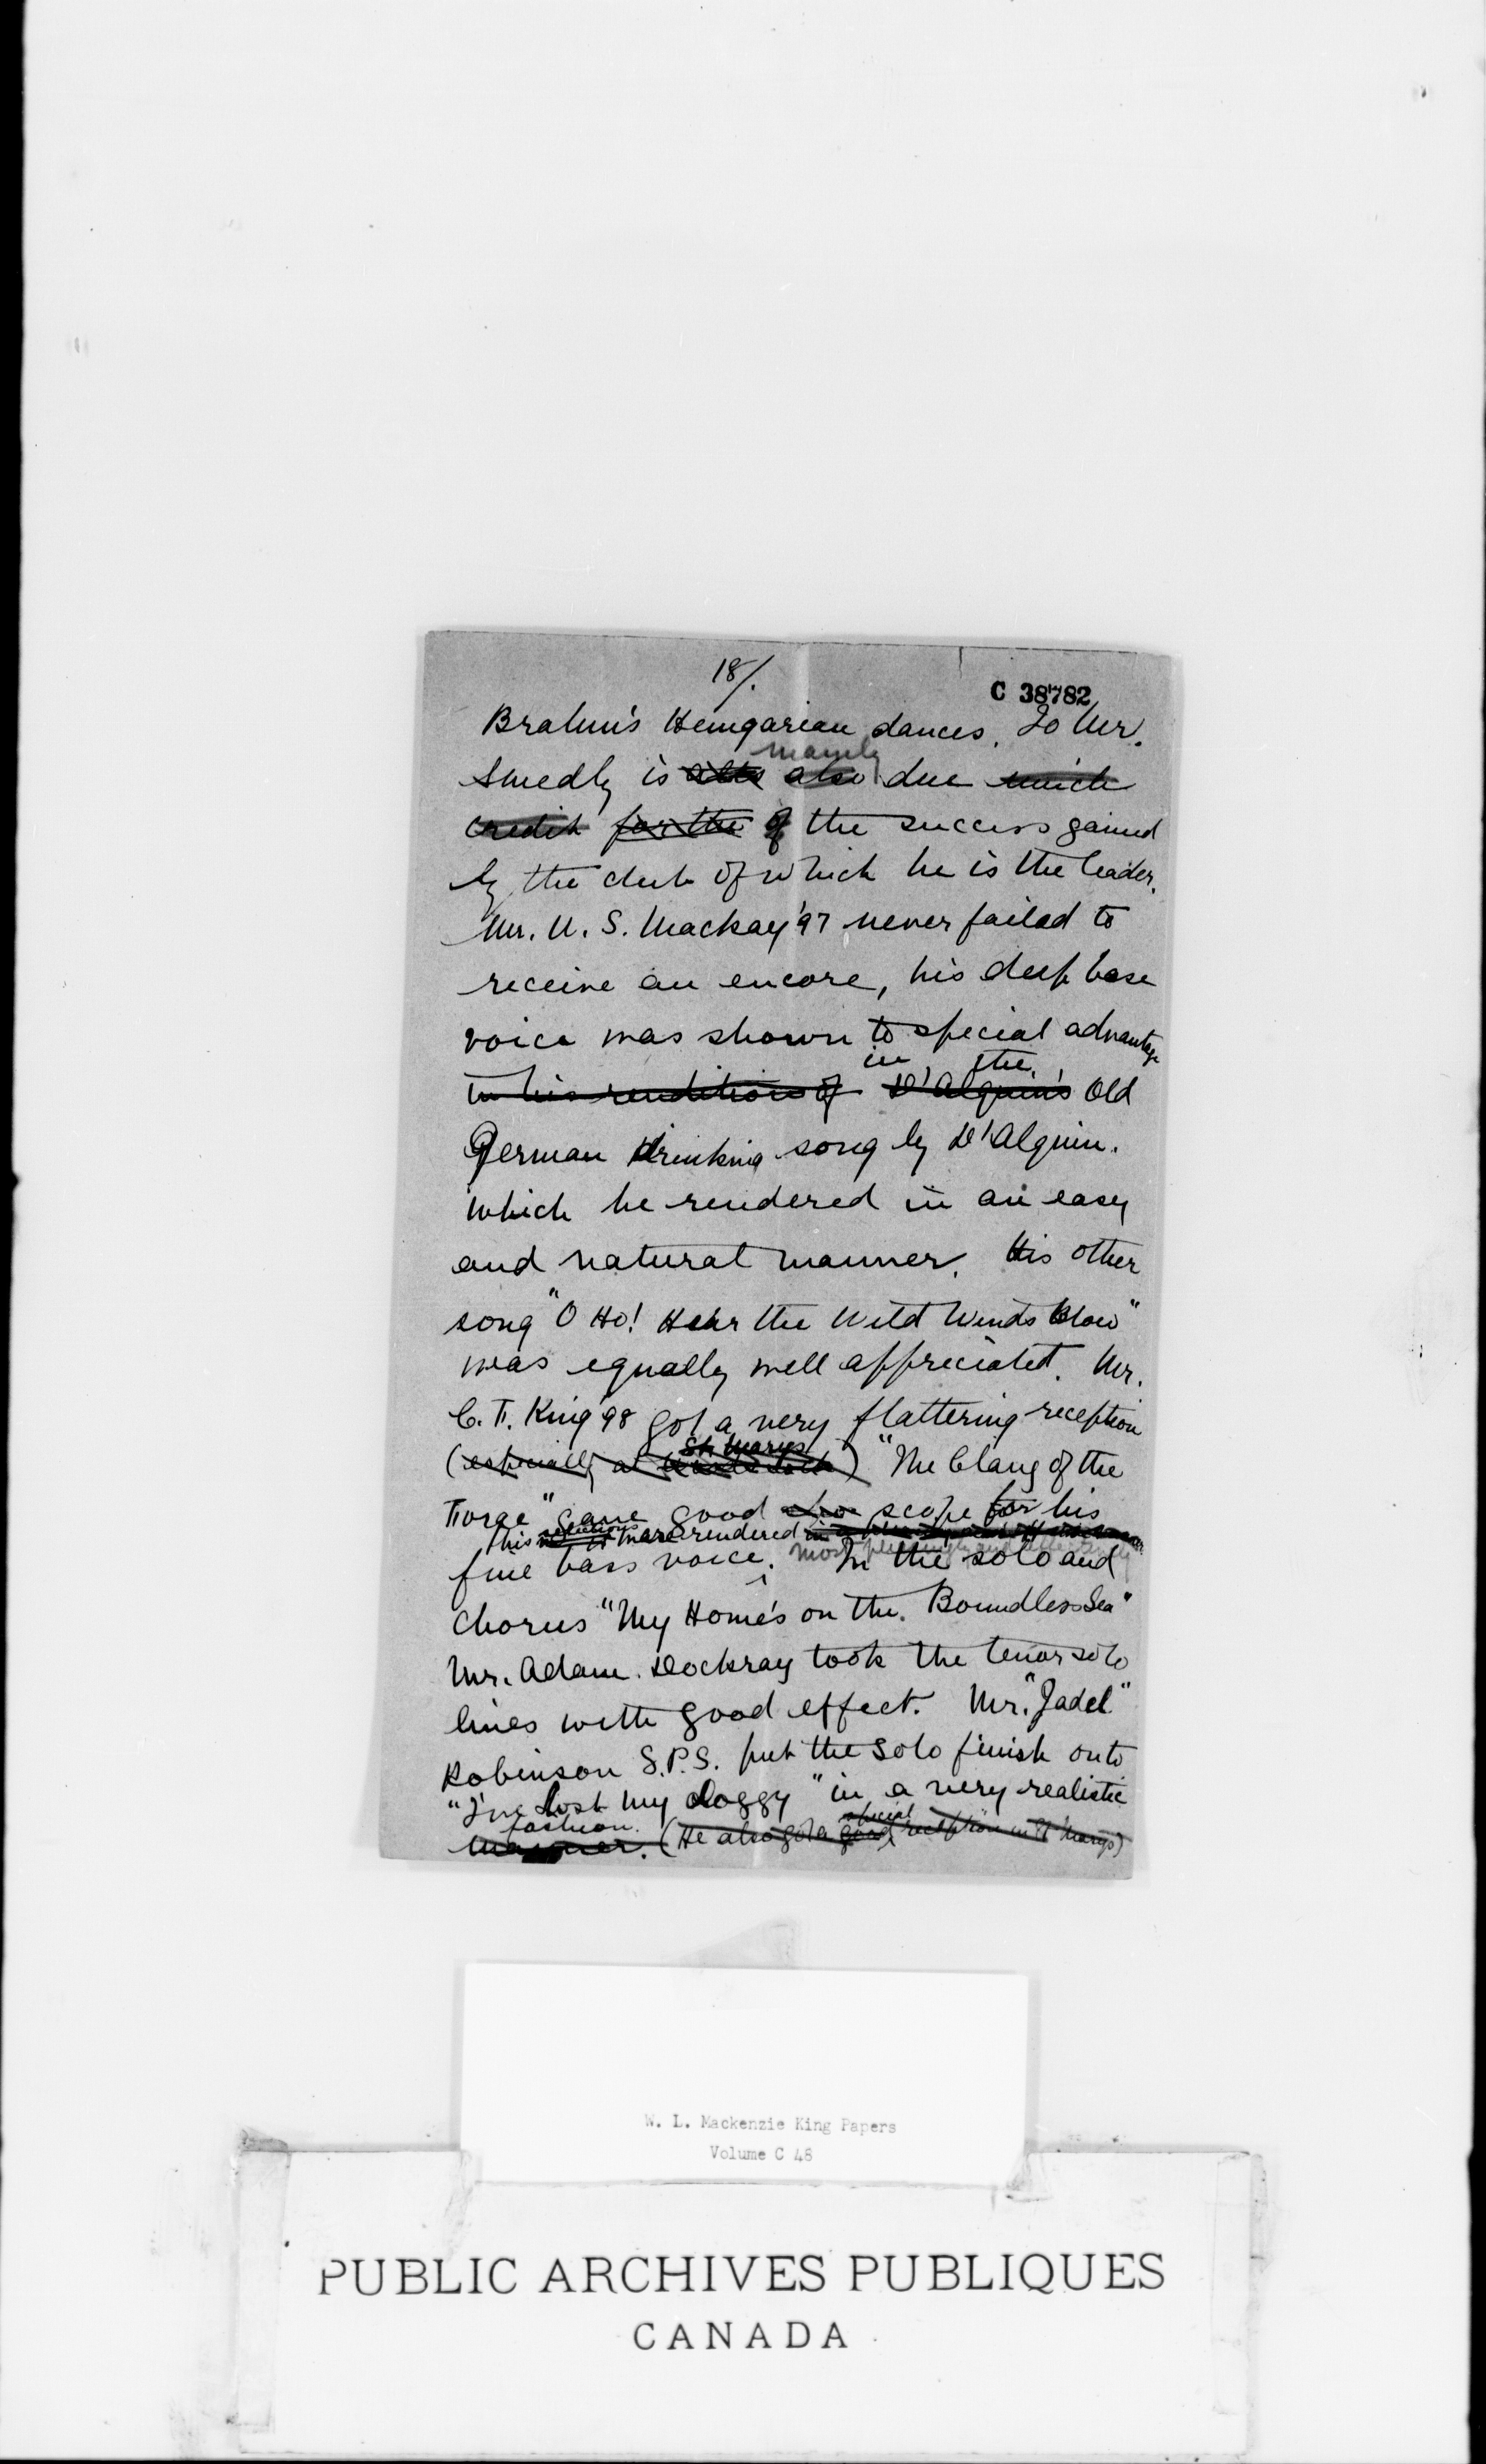 18/.
C 38782
Brahm's Hungarian dances. To Mr.
mainly
Smedly is also also due much
credit for the of the success gained
by the club of which he is the leader.
Mr. U. S. Mackay '97 never failed to
receive an encore, his deep base
voice was shown to special advantage
in the
in his rendition of D'Alquin's Old
German drinking song by D'Alquin.
which he rendered in an easy
and natural manner. His other
song "O Ho! Hear the Wild Winds Blow"
was equally well appreciated. Mr.
C. F. King '98 got a very flattering reception
St Marys
(especially at Woodstock) "The Clang of the
Forge" gave good scope for his
This selections were rendered in a
most pleasingly and effectively
fine bass voice. In the solo and
chorus "My Home's on the. Boundless Sea"
Mr. Adam. Dockray took the tenor solo
lines with good effect. Mr. "Jadel"
Robinson S.P.S. put the solo finish onto
"I've Lost My Doggy" in a very realistic
fashion. special
manner. (He also got a good reception in St Marys)
W. L. Mackenzie King Papers
Volume C 48
PUBLIC ARCHIVES PUBLIQUES
CANADA